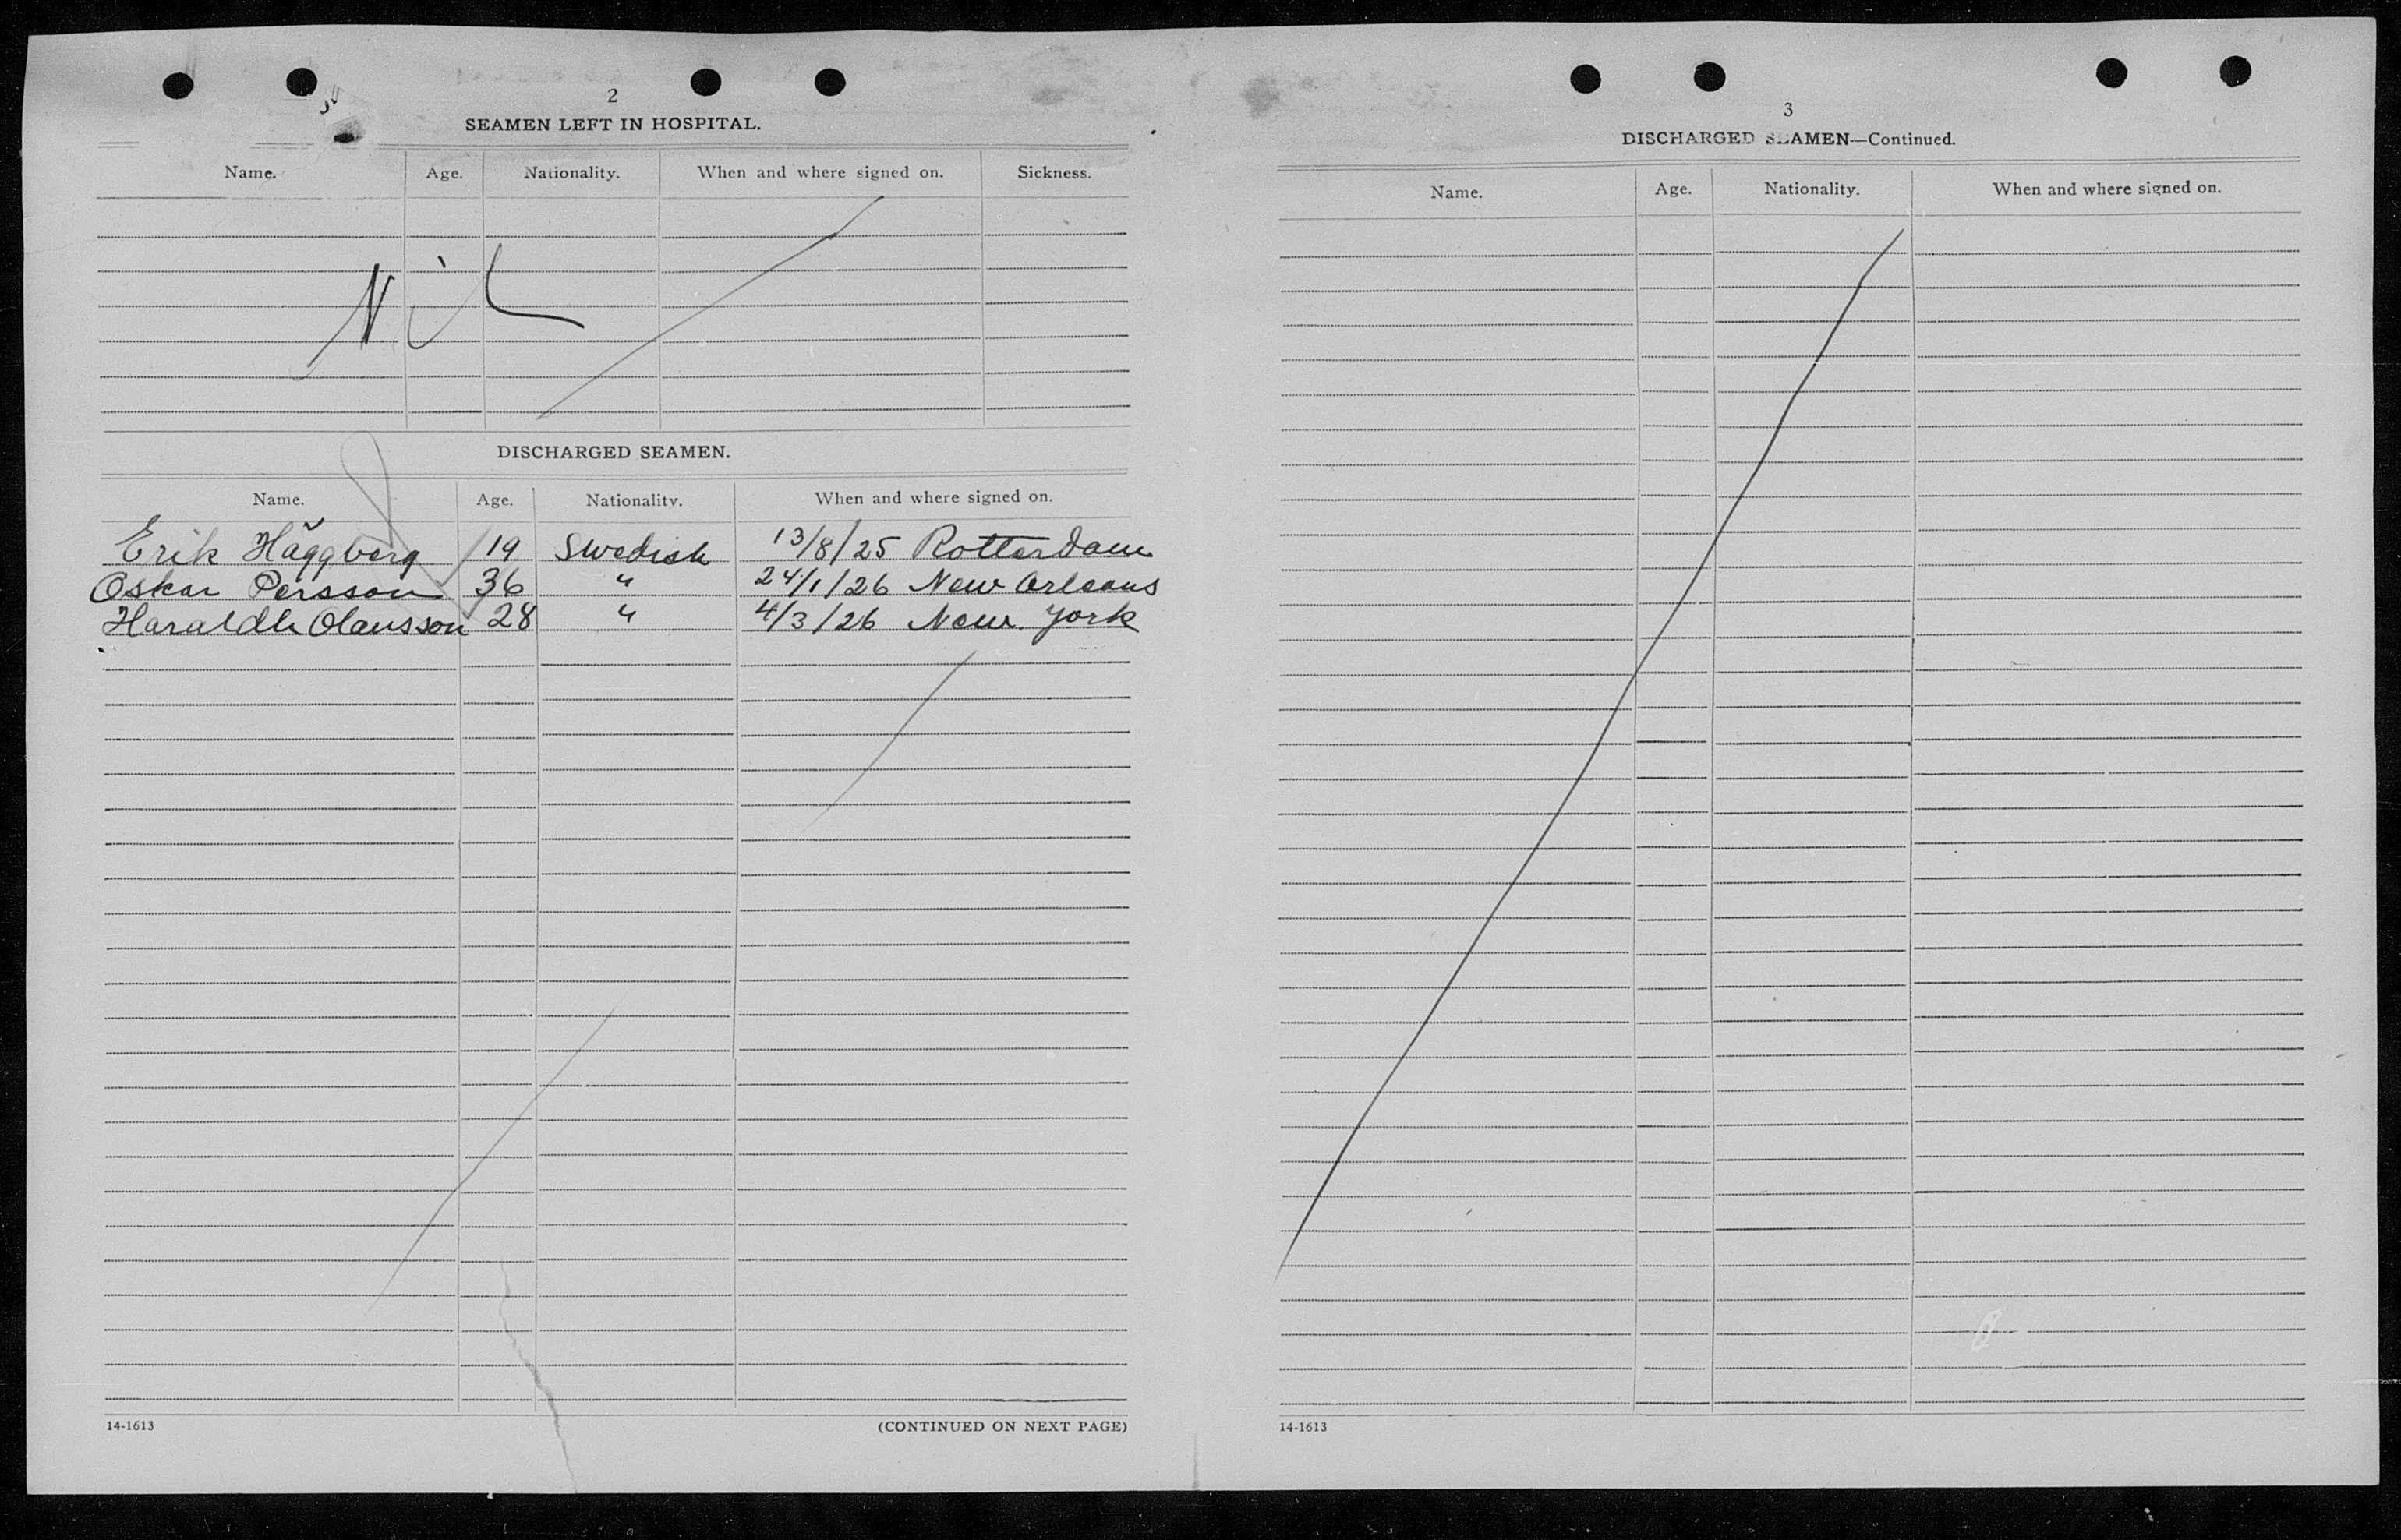 2
SEAMEN LEFT IN HOSPITAL.
Name. Age. Nationality. When and where signed on. Sickness.
Nil
DISCHARGED SEAMEN.
Name. Age. Nationality. When and where signed on.
Erik Häggberg 19 Swedish 13/8/25 Rotterdam
Oskar Persson 36 " 24/1/26 New Orleans
Haraldh Olausson 28 " 4/3/26 New York
14-1613 (CONTINUED ON NEXT PAGE)
3
DISCHARGED SEAMEN—Continued.
Name. Age. Nationality. When and where signed on.
14-1613